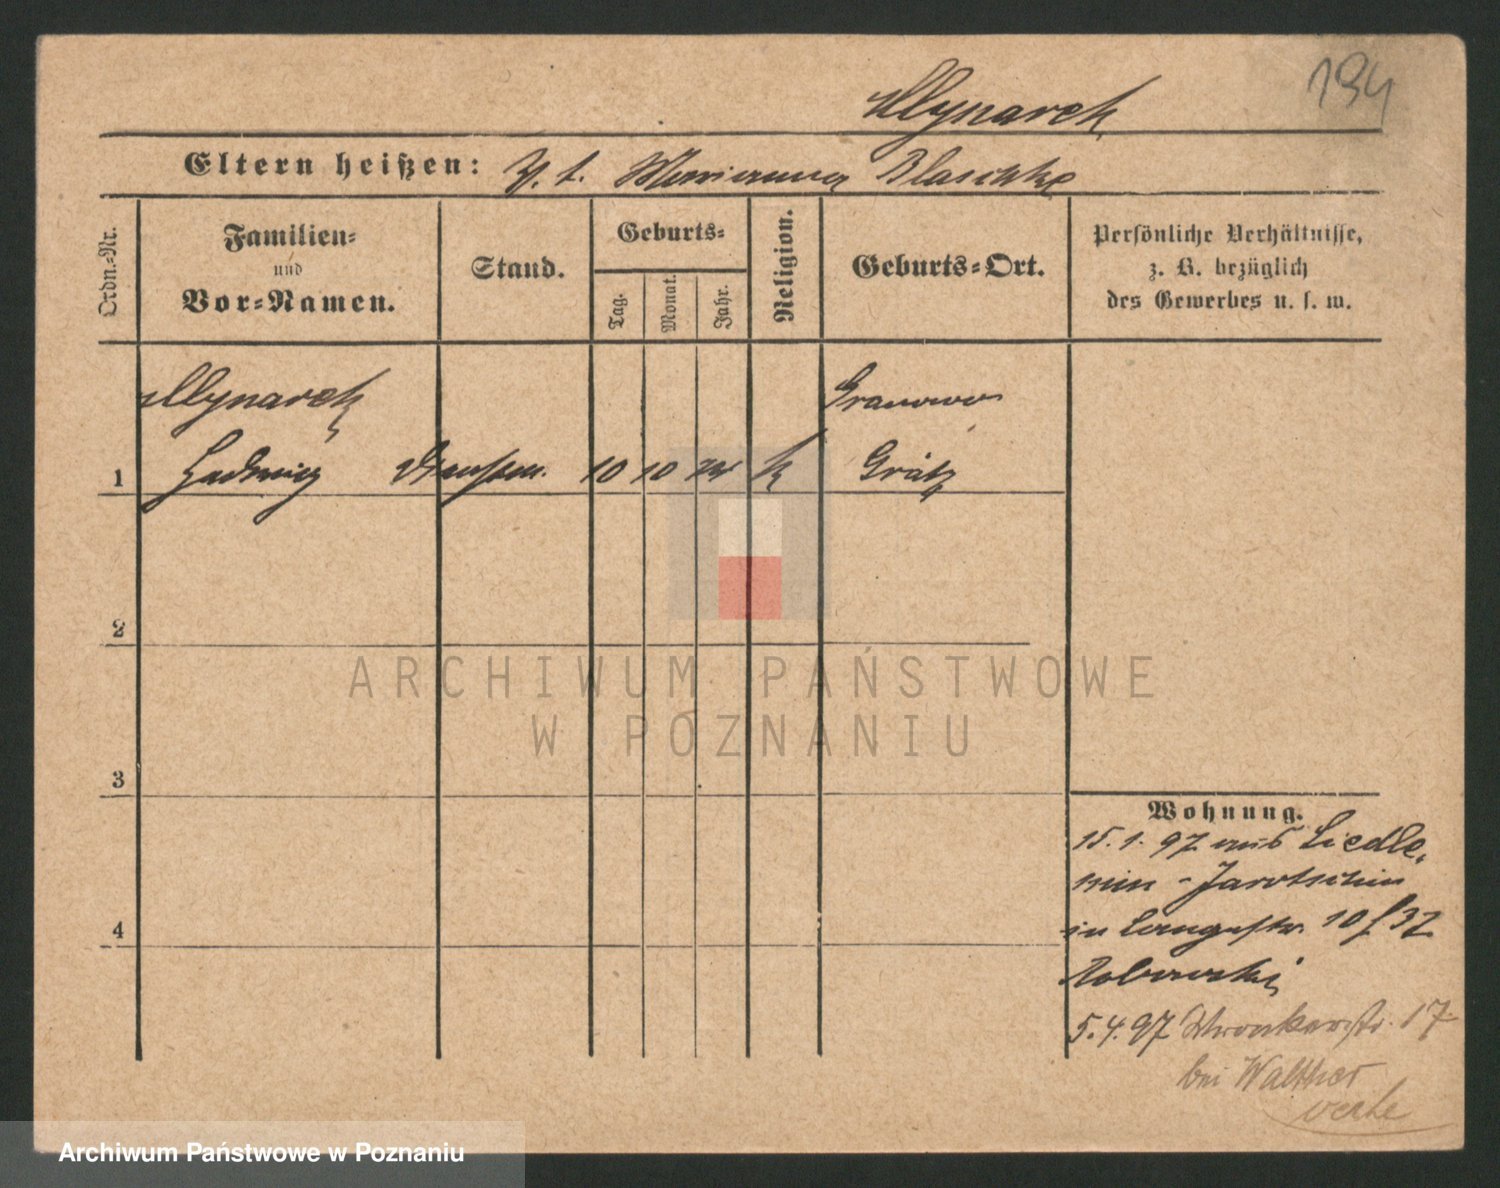 194
Mlynarek
Eltern heißen: V. t. Marianna Blaschke
Ordn.-Nr.
Familien- und Vor-Namen.
Stand.
Geburts-
Tag.
Monat.
Jahr.
Religion.
Geburts-Ort.
Persönliche Verhältnisse,
z. B. bezüglich
des Gewerbes u. s. w.
Mlynarek Granowo
1 Hedwig 10 10 k Grätz
2
3
4
Wohnung.
15. 1. 97 aus Siedle-
min - Jarotschin
in Langestr. 10
5.4.97 Wronkerstr. 17
bei Walther
ARCHIWUM PAŃSTWOWE
W POZNANIU
Archiwum Państwowe w Poznaniu